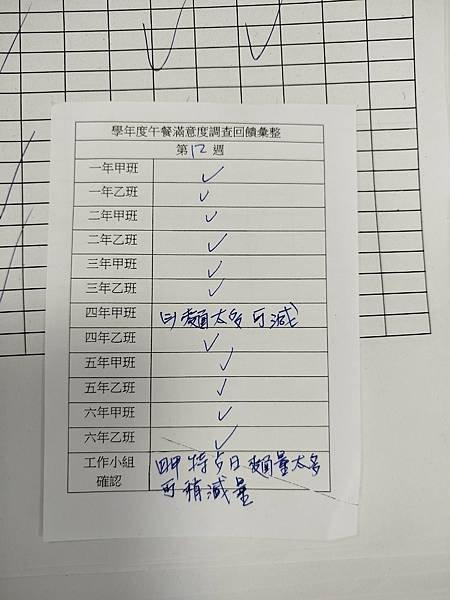 學年度午餐滿意度調查回饋彙整
第12週
一年甲班 ✓
一年乙班 ✓
二年甲班 ✓
二年乙班 ✓
三年甲班 ✓
三年乙班 ✓
四年甲班 麵太多可減
四年乙班 ✓
五年甲班 ✓
五年乙班 ✓
六年甲班 ✓
六年乙班 ✓
工作小組
確認
四甲特5日麵量太多
可稍減量